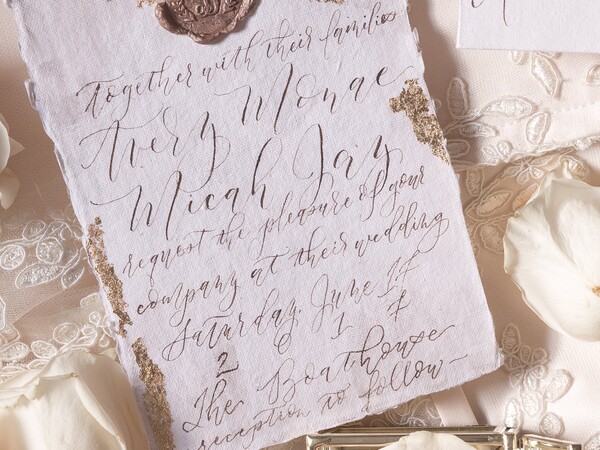 Together with their families
Avery Monae
Micah Jay
request the pleasure of your
company at their wedding
Saturday, June 17
2 0 1 7
The Boathouse
reception to follow